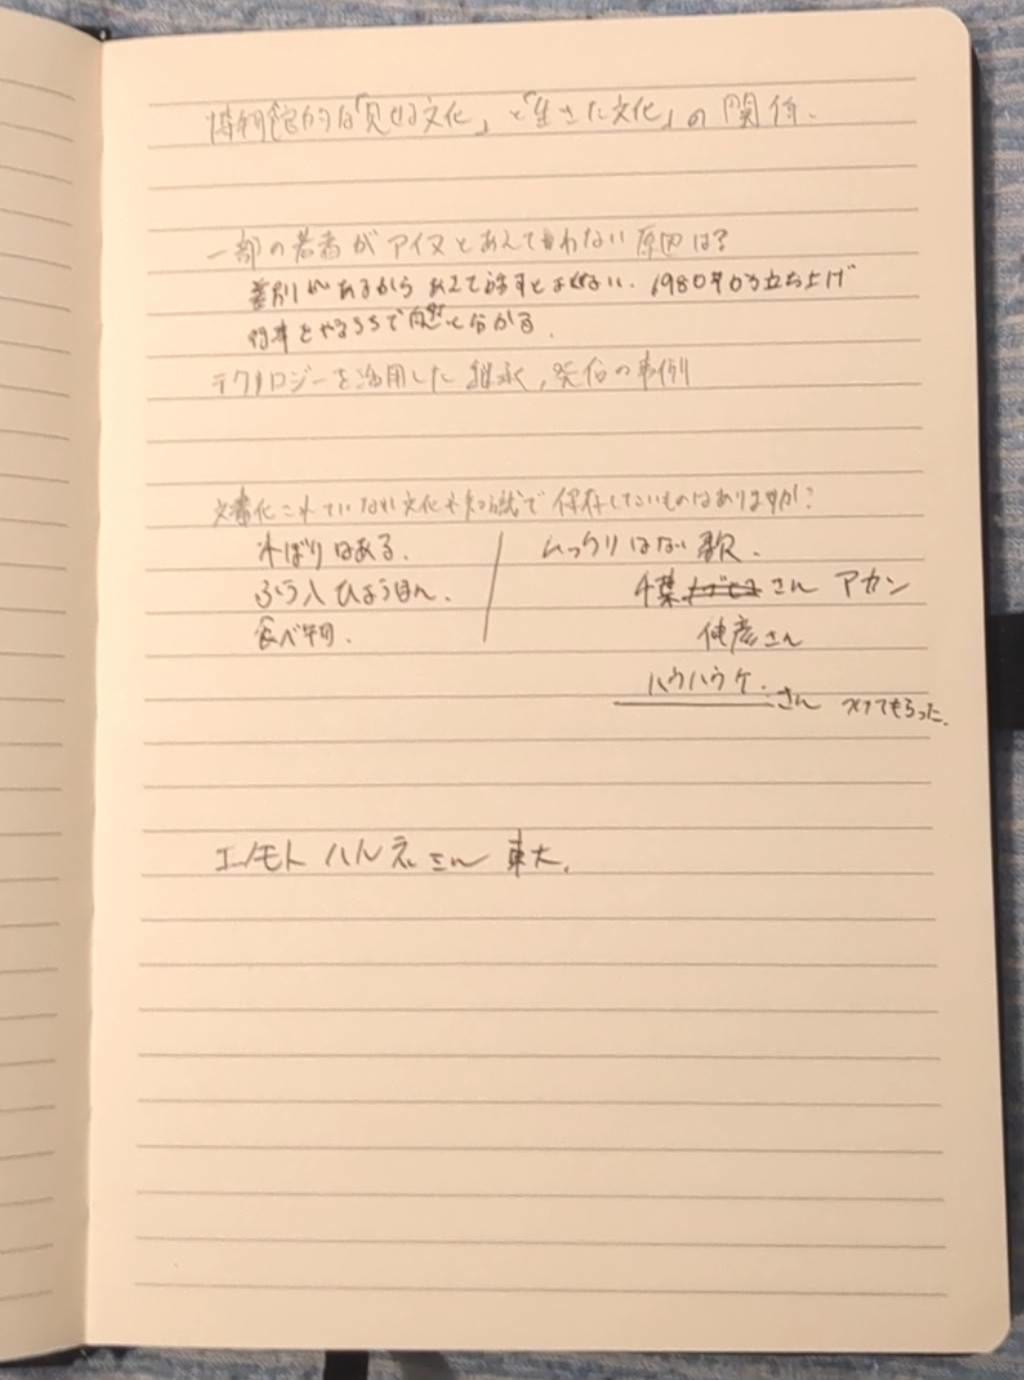 博物館的な「見せる文化」と「生きた文化」の関係.
一部の若者がアイヌとあえて言わない原因は?
差別があるから あえて話すとよくない. 1980年から立ち上げ
行事をやるうちで自然と分かる.
テクノロジーを活用した継承,発信の事例
文書化されていない文化や知識で保存したいものはありますか?
やばりはある.
ふう入ひょうほん.
食べ物.
ムックリはない 歌.
千葉 さん アカン
伸彦さん
ハウハウケ.さん つけてもらった.
エノモト ハルネさん 東大.